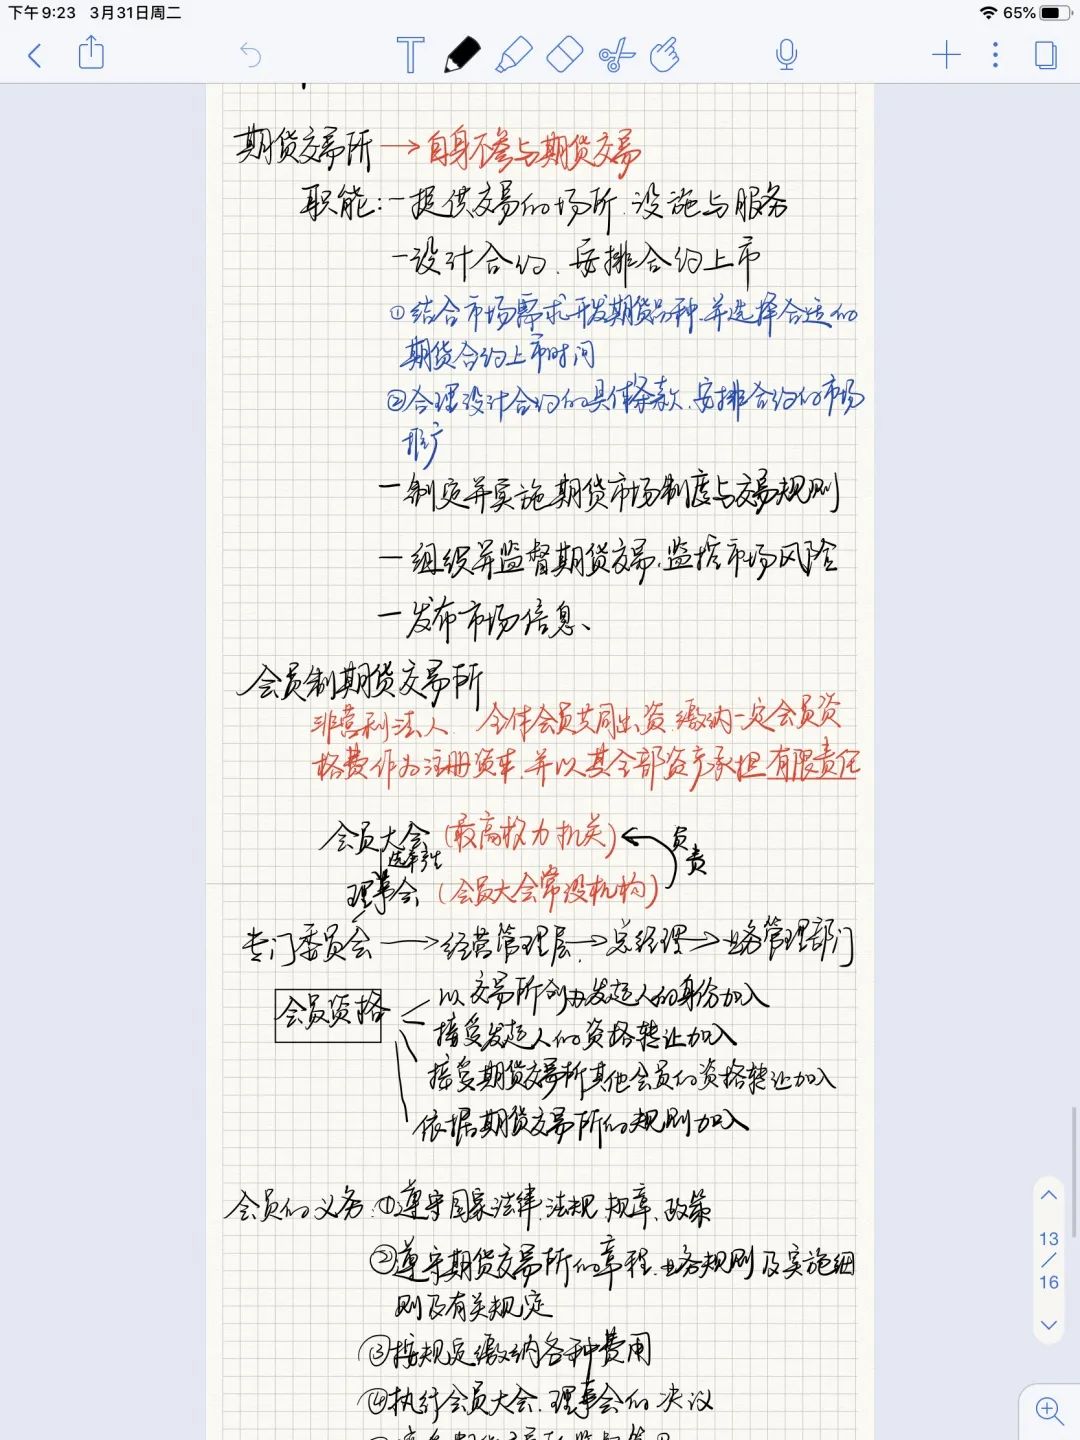 下午9:23 3月31日周二 65%
期货交易所 → 自身不参与期货交易
职能:一提供交易的场所、设施与服务
一设计合约、安排合约上市
①结合市场需求开发期货品种,并选择合适的
期货合约上市时间
②合理设计合约的具体条款、安排合约的市场
推广
一制定并实施期货市场制度与交易规则
一组织并监督期货交易、监控市场风险
一发布市场信息、
会员制期货交易所
非营利法人 全体会员共同出资 缴纳一定会员资
格费作为注册资本,并以其全部资产承担有限责任
会员大会(最高权力机关)
选举产生
负责
理事会(会员大会常设机构)
专门委员会 → 经营管理层 → 总经理 → 业务管理部门
会员资格
以交易所创办发起人的身份加入
接受发起人的资格转让加入
接受期货交易所其他会员的资格转让加入
依据期货交易所的规则加入
会员的义务:①遵守国家法律、法规、规章、政策
②遵守期货交易所的章程、业务规则及实施细
则及有关规定
③按规定缴纳各种费用
④执行会员大会、理事会的决议
13
/
16